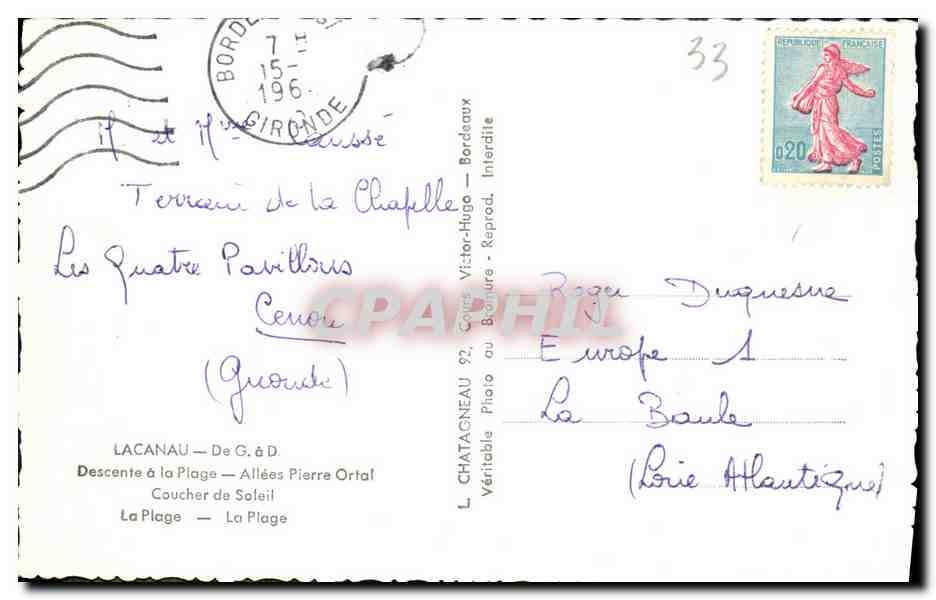 BORDE
7
15-
196
GIRONDE
33
REPUBLIQUE FRANÇAISE
0,20
POSTES
M. et Mme
Terrain de la Chapelle
Les Quatre Pavillons
Cenon
(Gironde)
LACANAU — De G. à D.
Descente à la Plage — Allées Pierre Ortal
Coucher de Soleil
La Plage — La Plage
L. CHATAGNEAU 92, Cours Victor-Hugo — Bordeaux
Véritable Photo au Bromure - Reprod. Interdite
CPAPHIL
Roger Duquesne
Europe 1
La Baule
(Loire Atlantique)